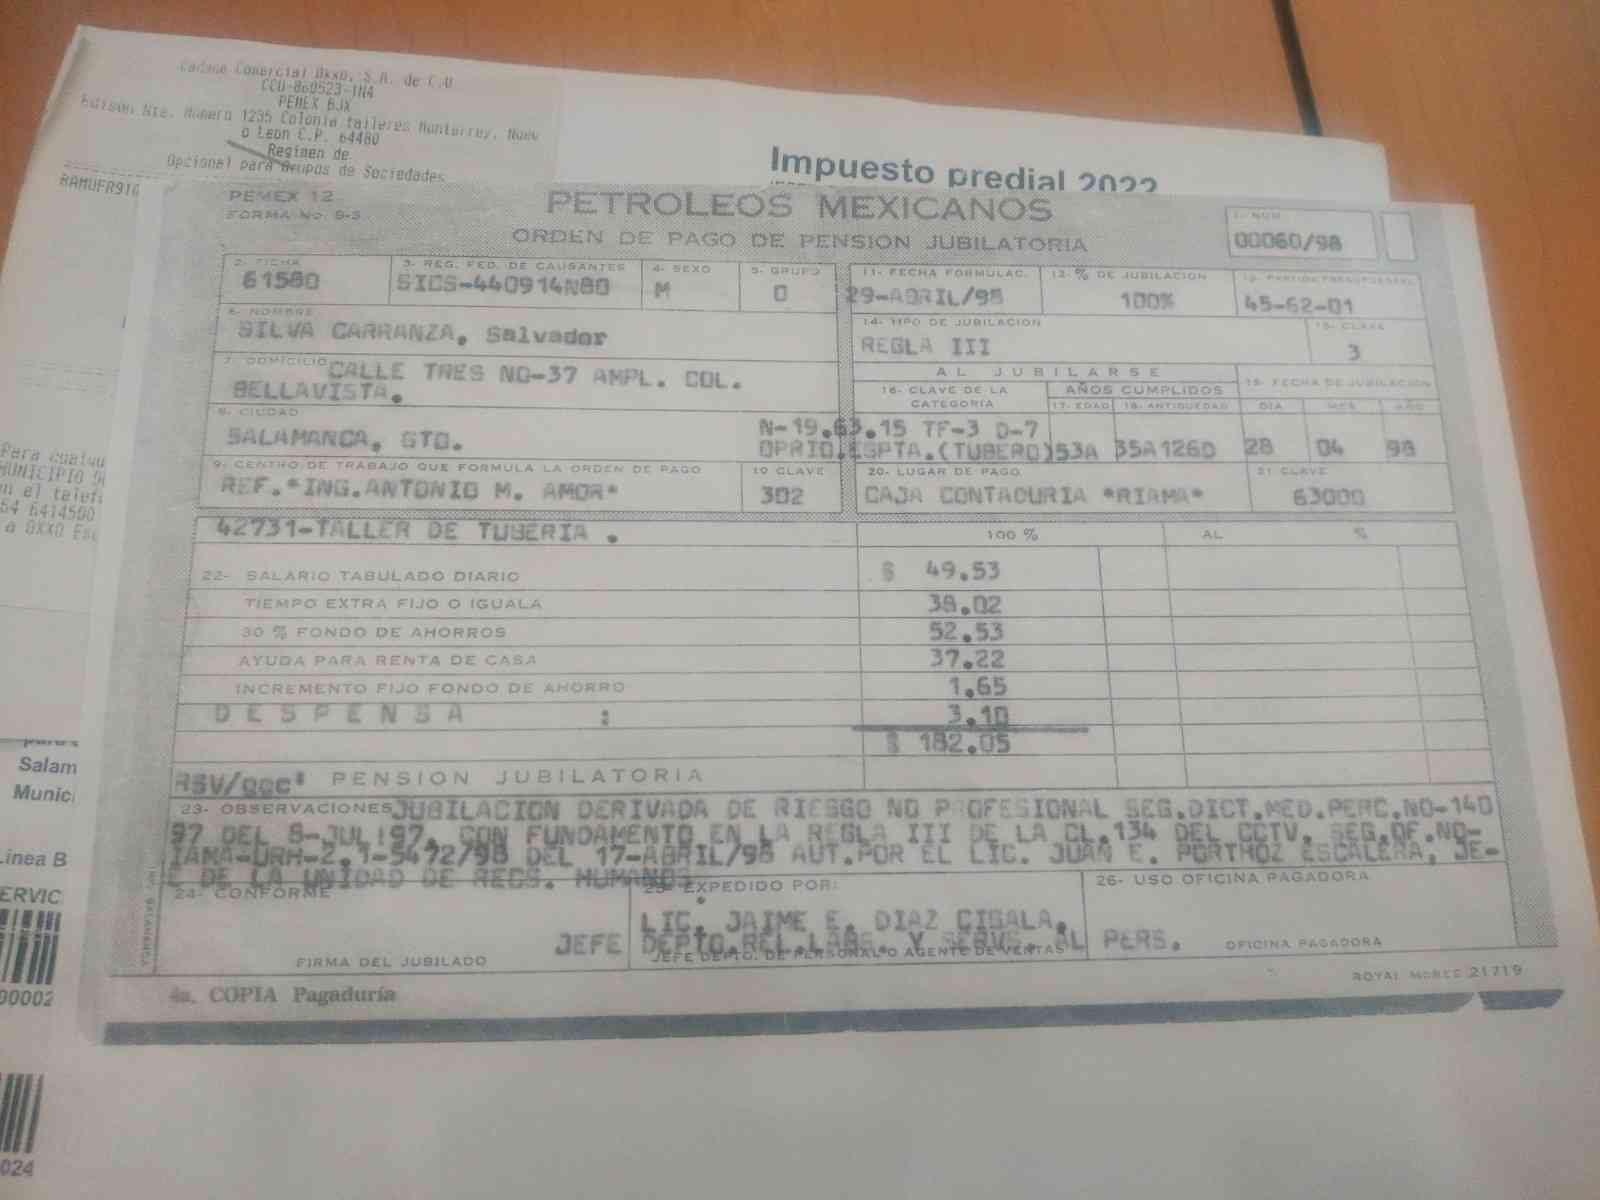 Cadena Comercial Oxxo, S.A. de C.V
CCO-860523-1N4
PEMEX BJX
Edison Nte. Numero 1235 Colonia talleres Monterrey, Nuev
o Leon C.P. 64480
Regimen de
Opcional para Grupos de Sociedades
RAMUFR910
Impuesto predial 2022
PEMEX 12
FORMA No. S-3
PETROLEOS MEXICANOS
ORDEN DE PAGO DE PENSION JUBILATORIA
1- NUM.
00060/98
2- FICHA
61580
3- REG. FED. DE CAUSANTES
SICS-440914N80
4- SEXO
M
5- GRUPO
0
11- FECHA FORMULAC.
29-ABRIL/98
12- % DE JUBILACION
100%
13- PARTIDA PRESUPUESTAL
45-62-01
6- NOMBRE
SILVA CARRANZA, Salvador
14- TIPO DE JUBILACION
REGLA III
15- CLAVE
3
7- DOMICILIO CALLE TRES NO-37 AMPL. COL.
BELLAVISTA.
AL JUBILARSE
16- CLAVE DE LA
CATEGORIA
AÑOS CUMPLIDOS
17- EDAD 18- ANTIGUEDAD
FECHA DE JUBILACION
DIA MES AÑO
8- CIUDAD
SALAMANCA, GTO.
N-19.63.15 TF-3 D-7
OPRIO.ESPTA.(TUBERO) 53A 35A126D 28 04 98
9- CENTRO DE TRABAJO QUE FORMULA LA ORDEN DE PAGO
REF.*ING.ANTONIO M. AMOR*
10 CLAVE
302
20- LUGAR DE PAGO
CAJA CONTADURIA *RIAMA*
21 CLAVE
63000
42731-TALLER DE TUBERIA .
100 % AL %
22- SALARIO TABULADO DIARIO $ 49.53
TIEMPO EXTRA FIJO O IGUALA 38.02
30 % FONDO DE AHORROS 52.53
AYUDA PARA RENTA DE CASA 37.22
INCREMENTO FIJO FONDO DE AHORRO 1.65
DESPENSA : 3.10
$ 182.05
RSV/ggc* PENSION JUBILATORIA
23- OBSERVACIONES JUBILACION DERIVADA DE RIESGO NO PROFESIONAL SEG.DICT.MED.PERC.NO-140
97 DEL 8-JUL!97, CON FUNDAMENTO EN LA REGLA III DE LA CL.134 DEL CCTV, SEG.OF.NO-
IAMA-URH-2.1-5472/98 DEL 17-ABRIL/98 AUT.POR EL LIC. JUAN E. PORTHOZ ESCALERA, JE-
E DE LA UNIDAD DE RECS. HUMANOS.
24- CONFORME
25- EXPEDIDO POR:
26- USO OFICINA PAGADORA
LIC. JAIME E. DIAZ CIGALA,
JEFE DEPTO.REL.LABS. Y SERVS. AL PERS.
JEFE DEPTO. DE PERSONAL O AGENTE DE VENTAS
FIRMA DEL JUBILADO
OFICINA PAGADORA
4a. COPIA Pagaduría
ROYAL MOREE 21719
Para cualqu
MUNICIPIO
n el telef
64 6414500
a OXXO Es
Salam
Munici
Línea B
ERVIC
00002
024